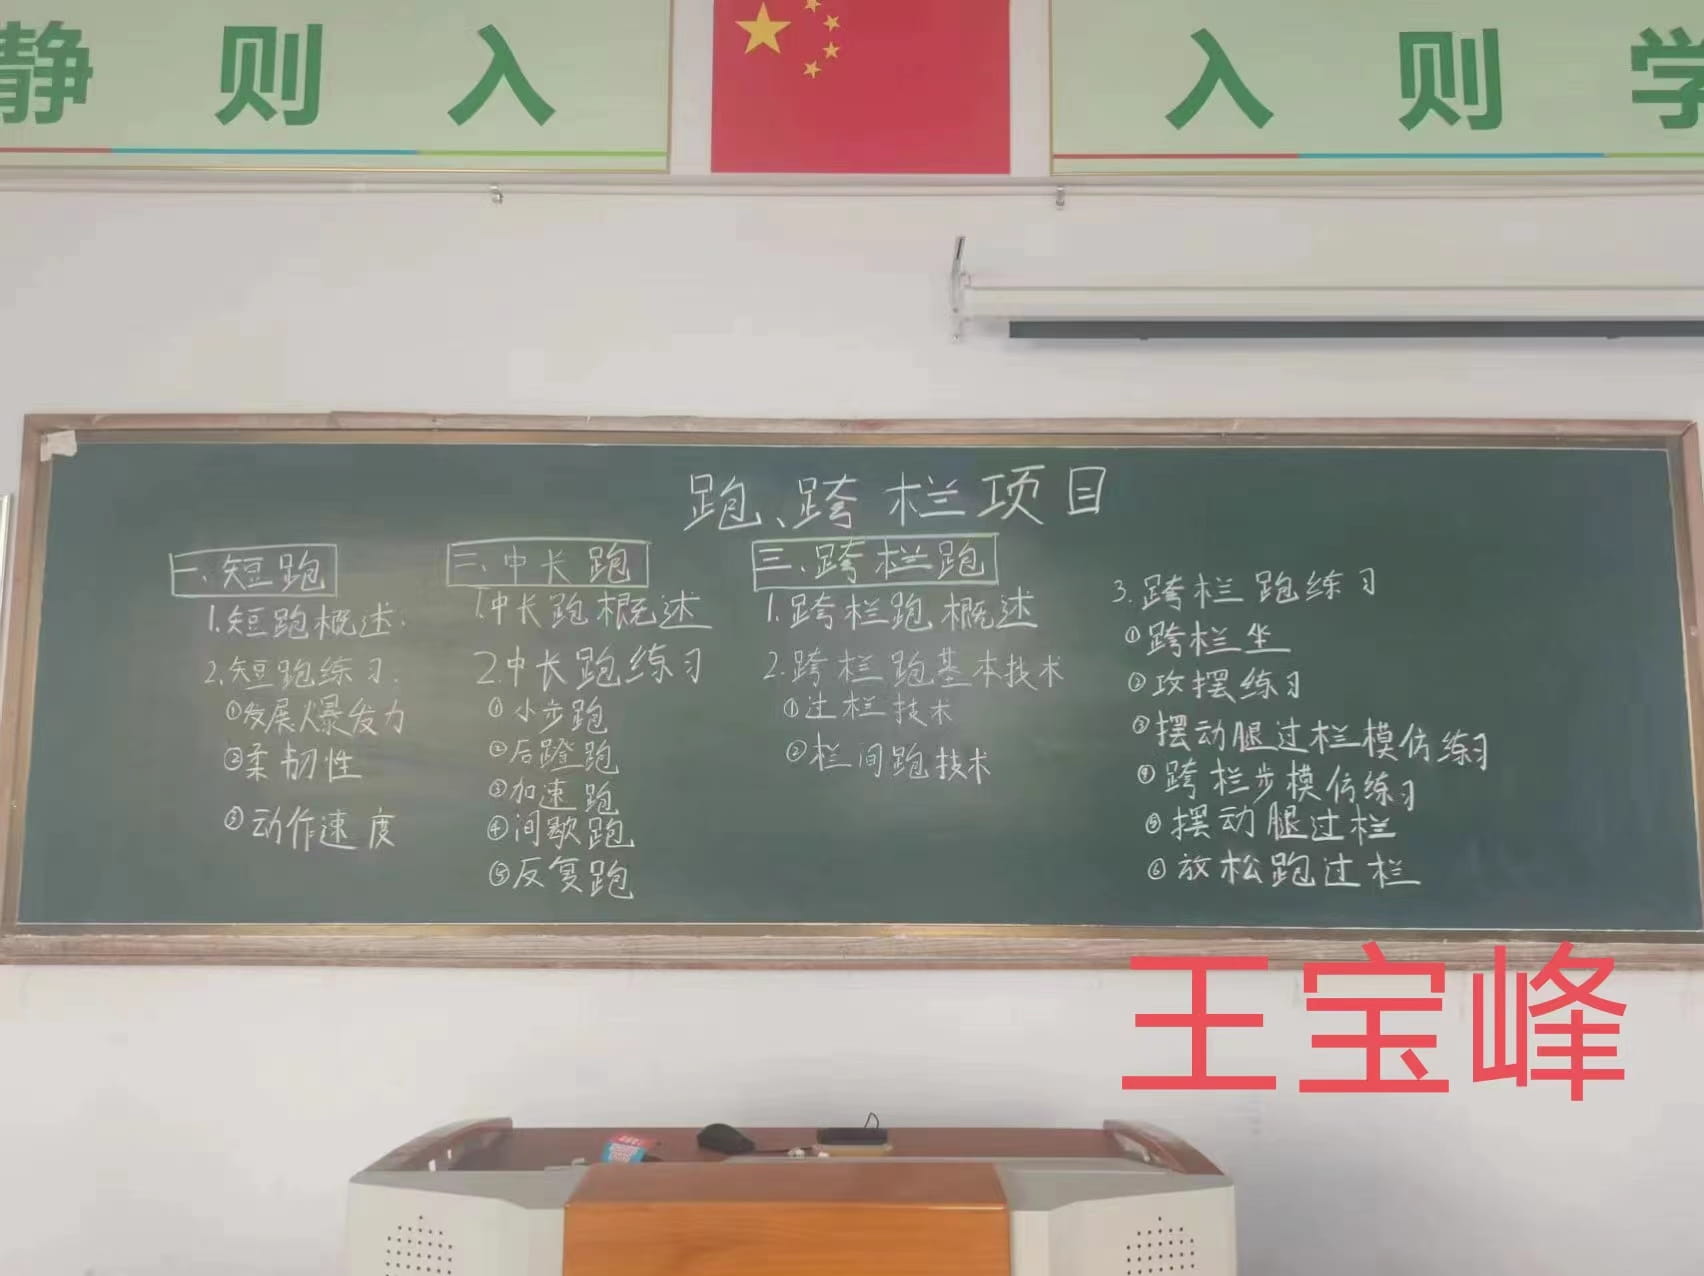 静则入
入则学
跑、跨栏项目
一、短跑
1.短跑概述:
2.短跑练习.
①发展爆发力
②柔韧性
③动作速度
三、中长跑
1.中长跑概述
2.中长跑练习
①小步跑
②后蹬跑
③加速跑
④间歇跑
⑤反复跑
三、跨栏跑
1.跨栏跑概述
2.跨栏跑基本技术
①过栏技术
②栏间跑技术
3.跨栏跑练习
①跨栏坐
②攻摆练习
③摆动腿过栏模仿练习
④跨栏步模仿练习
⑤摆动腿过栏
⑥放松跑过栏
王宝峰